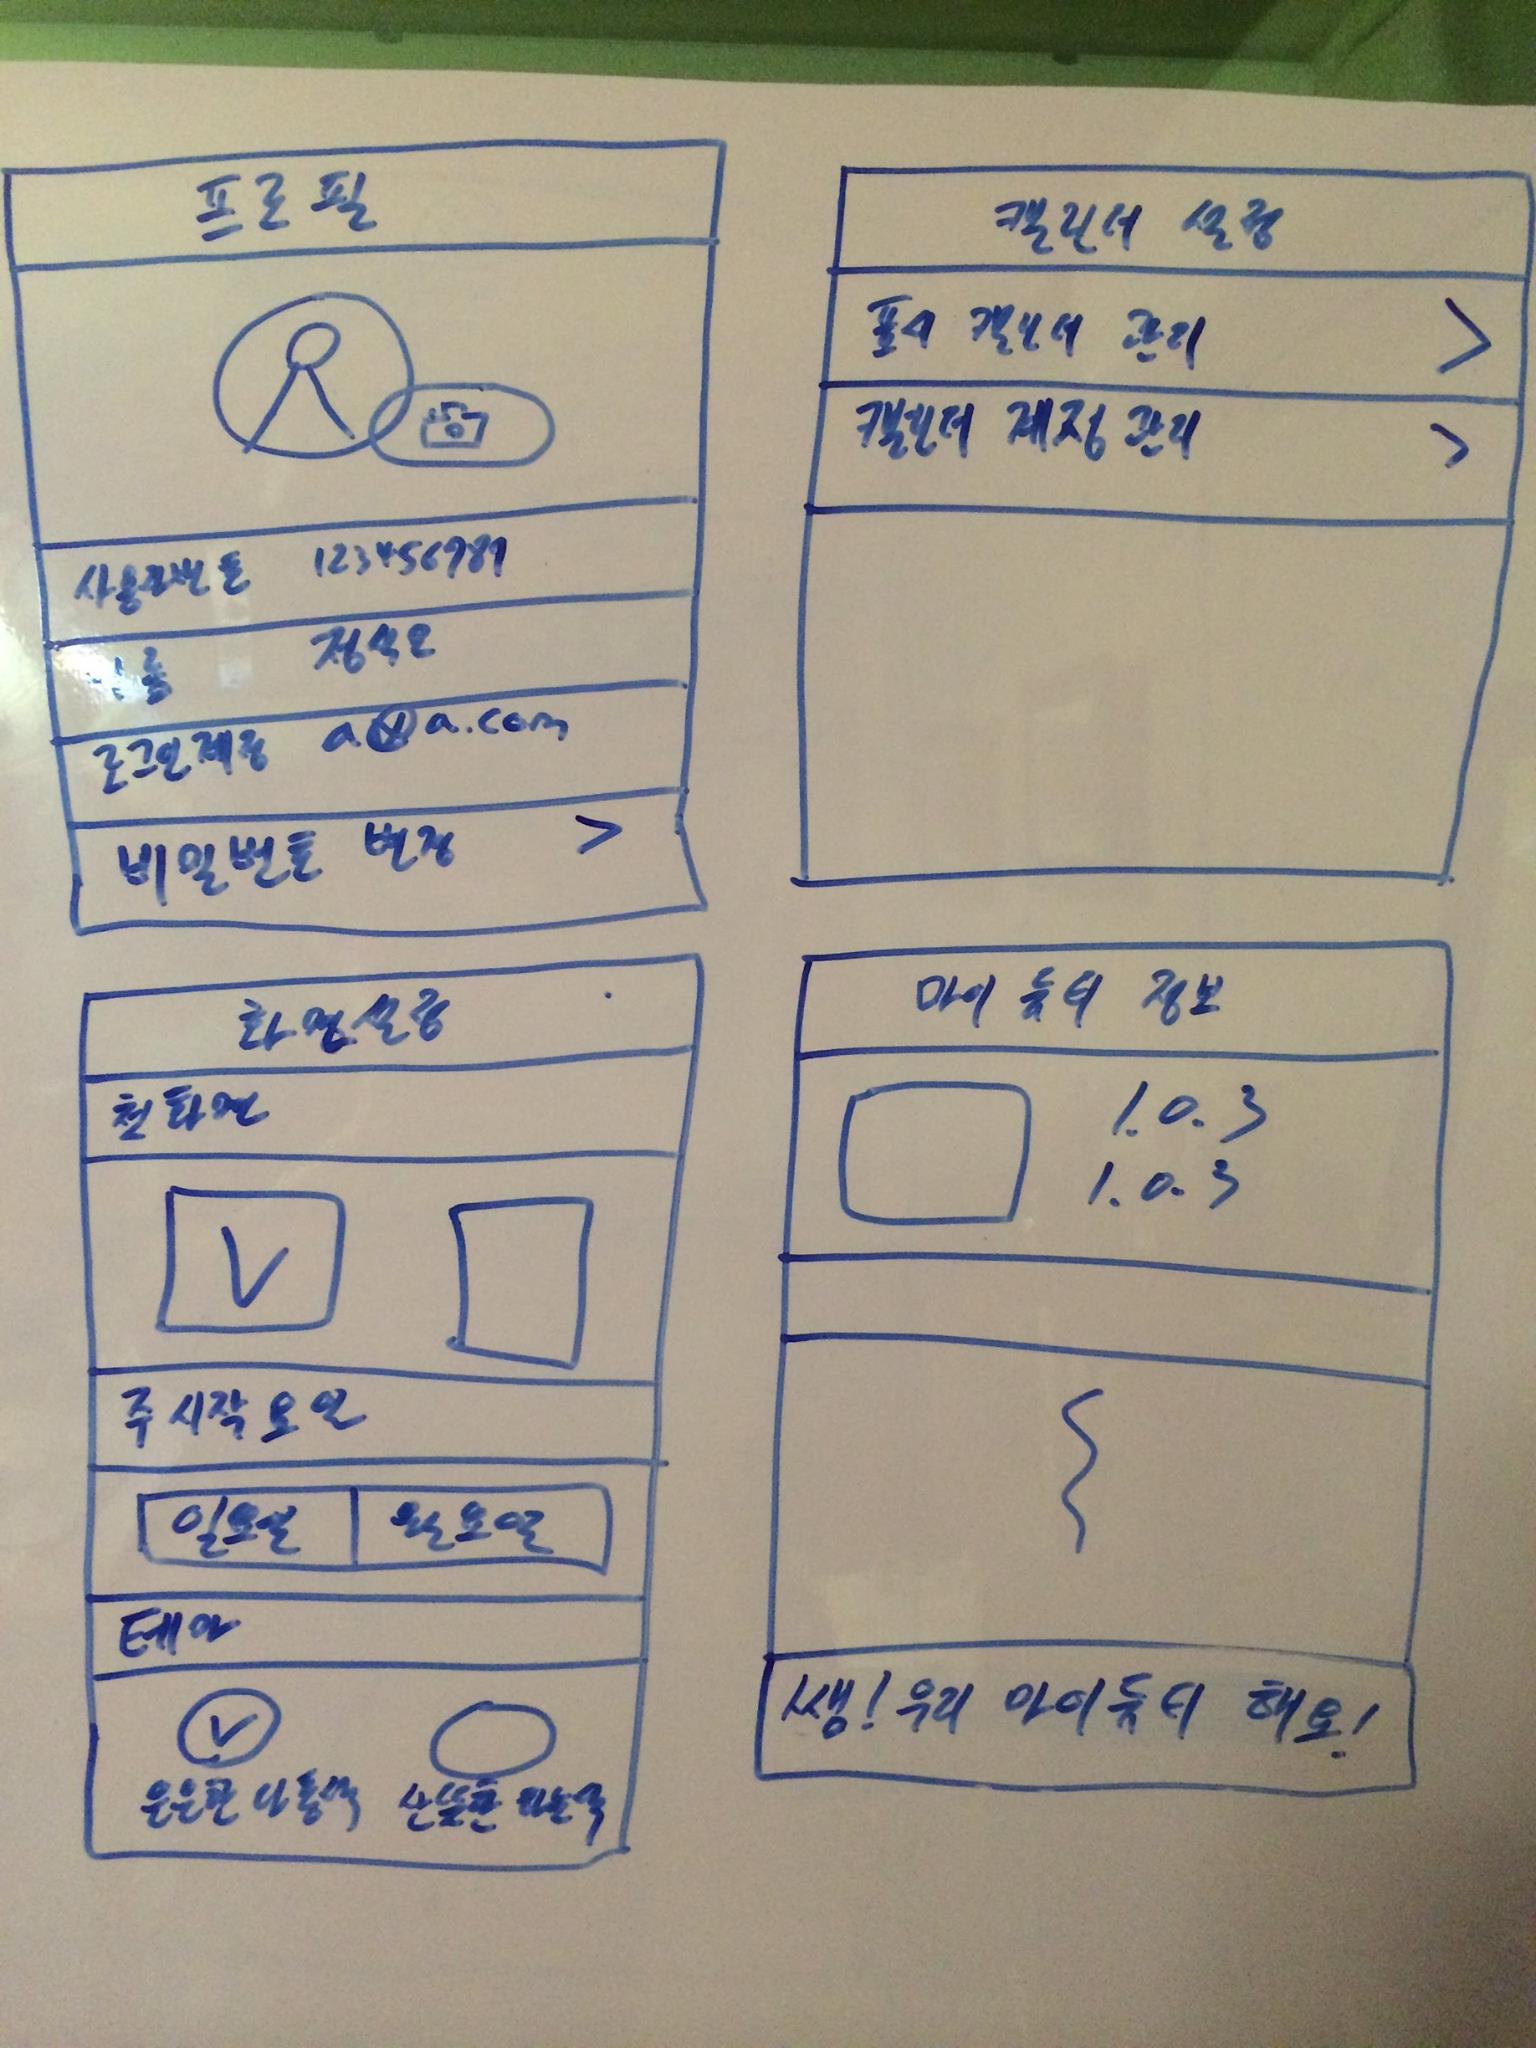 프로필
사용자번호 123456789
이름 정석모
로그인계정 a@a.com
비밀번호 변경 >
캘린더 설정
표시 캘린더 관리 >
캘린더 계정 관리 >
화면설정
첫화면
주 시작 요일
일요일 월요일
테마
은은한 나통색 산뜻한 파란색
마이 튜터 정보
1.0.3
1.0.3
쌤! 우리 마이튜터 해요!